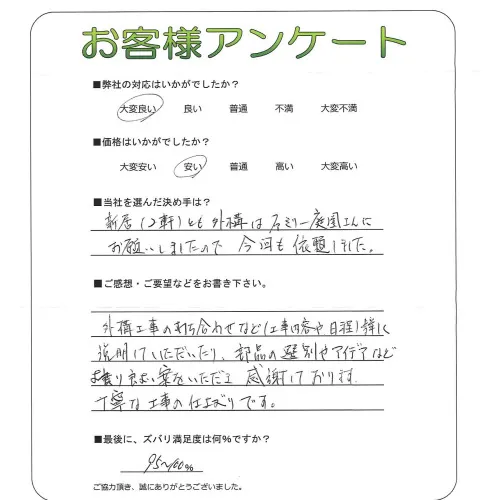 お客様アンケート
■弊社の対応はいかがでしたか？
大変良い 良い 普通 不満 大変不満
■価格はいかがでしたか？
大変安い 安い 普通 高い 大変高い
■当社を選んだ決め手は？
新居(2軒)とも外構は 庭園さんに
お願いしましたので 今回も依頼しました。
■ご感想・ご要望などをお書き下さい。
外構工事の打ち合わせなど(工事内容や日程)詳に
説明していただいたり、部品の選別やアイデアなど
より良い案をいただき 感謝しております。
丁寧な工事の仕上がりです。
■最後に、ズバリ満足度は何%ですか？
95~100%
ご協力頂き、誠にありがとうございました。